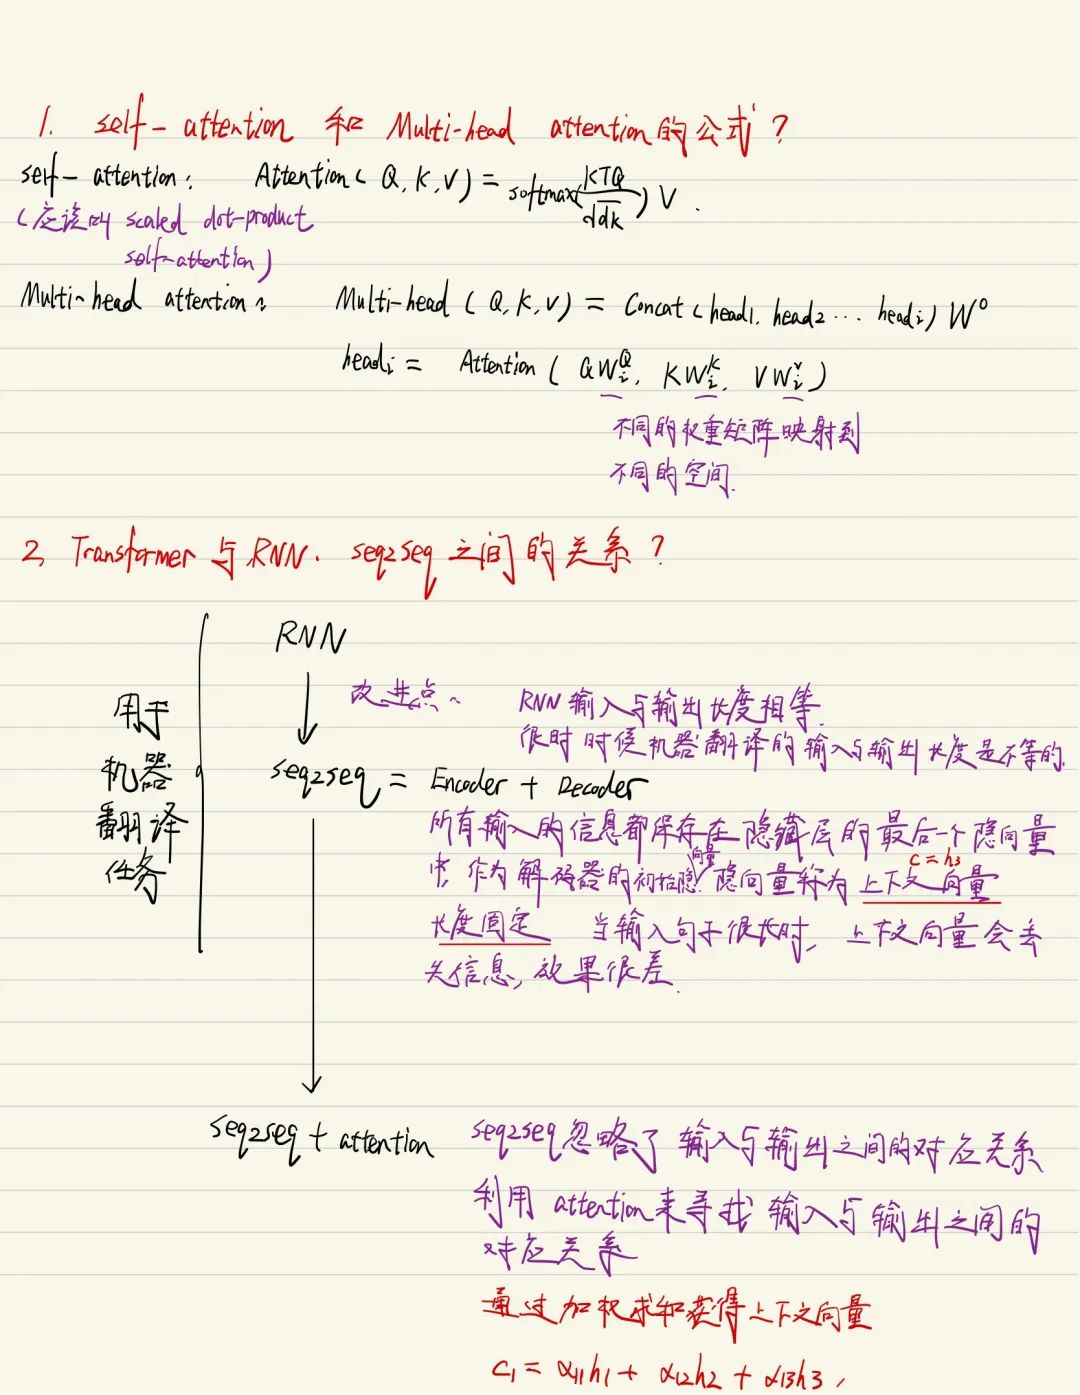 1. self-attention 和 Multi-head attention的公式?
self-attention: Attention(Q,K,V)=softmax(KTQ/√dk)V.
(应该叫 scaled dot-product
self-attention)
Multi-head attention: Multi-head(Q,K,V)=Concat(head1, head2 ... headi)W^o
headi = Attention(QWi^Q, KWi^K, VWi^V)
不同的权重矩阵映射到
不同的空间.
2. Transformer与RNN. seq2seq之间的关系?
用于
机器
翻译
任务
RNN
改进点: RNN输入与输出长度相等.
很时时候机器翻译的输入与输出长度是不等的.
seq2seq = Encoder + Decoder
所有输入的信息都保存在隐藏层的最后一个隐向量
向量 c=h3
中,作为解码器的初始隐. 隐向量称为上下文向量
长度固定 当输入句子很长时, 上下文向量会丢
失信息,效果很差.
seq2seq + attention seq2seq忽略了输入与输出之间的对应关系
利用attention来寻找输入与输出之间的
对应关系
通过加权求和获得上下文向量
c1 = α11h1 + α12h2 + α13h3,